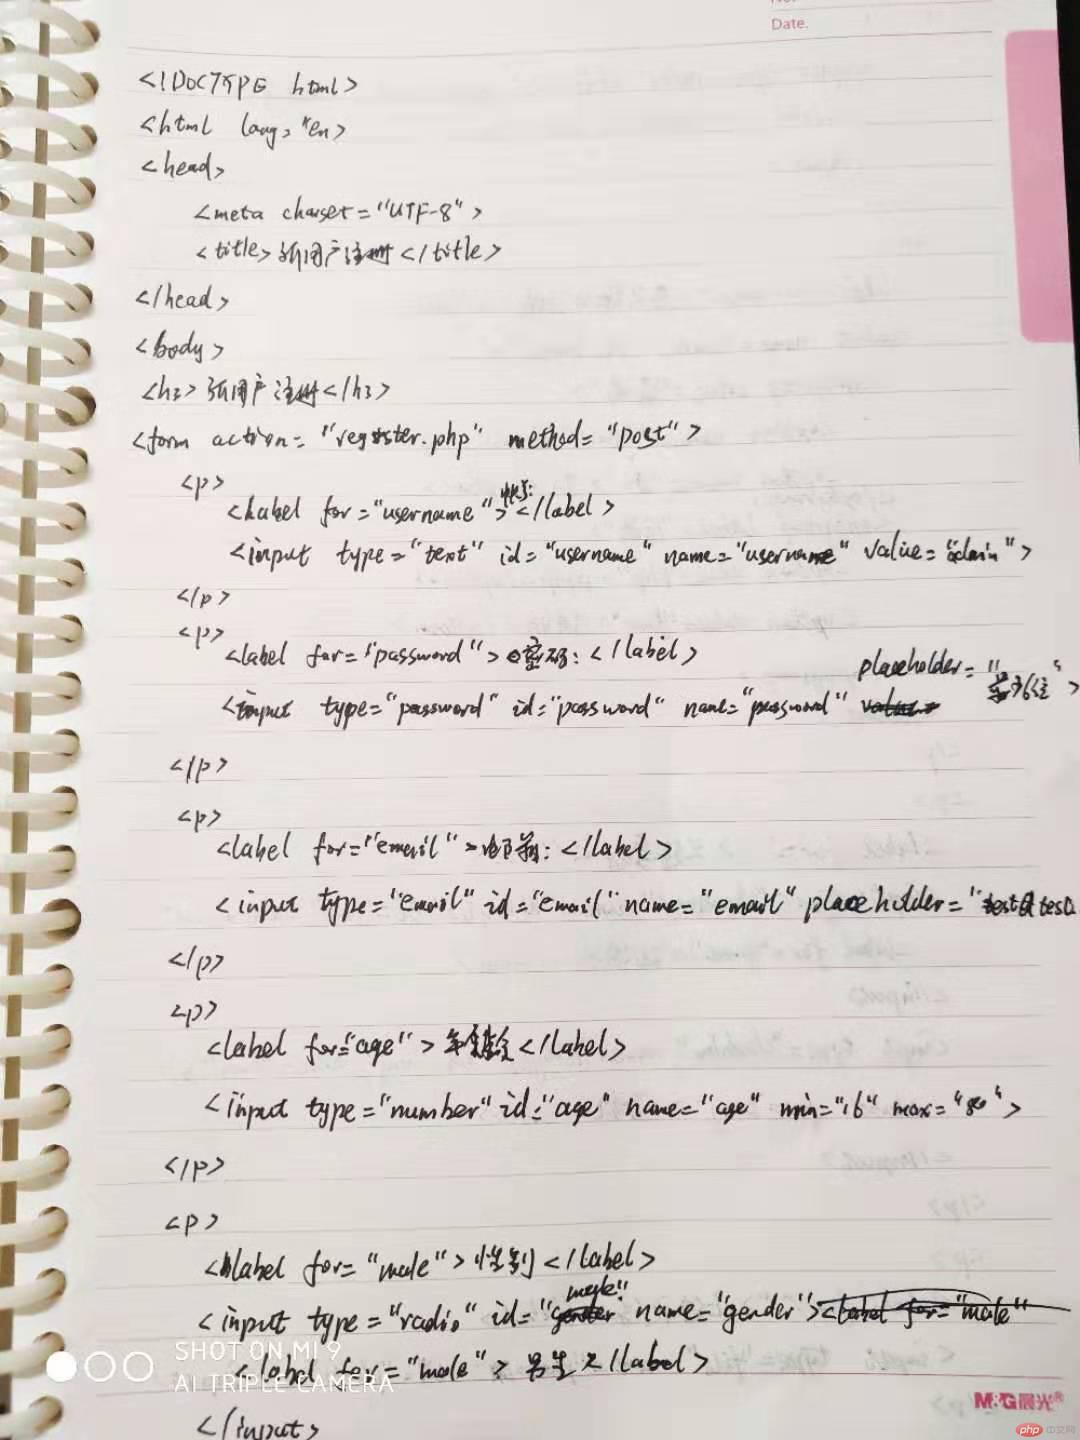 Date.
<!DOCTYPE html>
<html lang="en>
<head>
<meta charset="UTF-8">
<title>新用户注册</title>
</head>
<body>
<h3>新用户注册</h3>
<form action="register.php" method="post">
<p>
<label for="username">账号:</label>
<input type="text" id="username" name="username" value="admin">
</p>
<p>
<label for="password">密码:</label>
placeholder="
<input type="password" id="password" name="password" ">
</p>
<p>
<label for="email">邮箱:</label>
<input type="email" id="email" name="email" placeholder="test@test
</p>
<p>
<label for="age">年龄</label>
<input type="number" id="age" name="age" min="16" max="80">
</p>
<p>
<label for="male">性别</label>
male"
<input type="radio" id=" name="gender"><label for="male"
<label for="male">男生</label>
</input>
SHOT ON MI 9
AI TRIPLE CAMERA
M&G晨光®
php 中文网